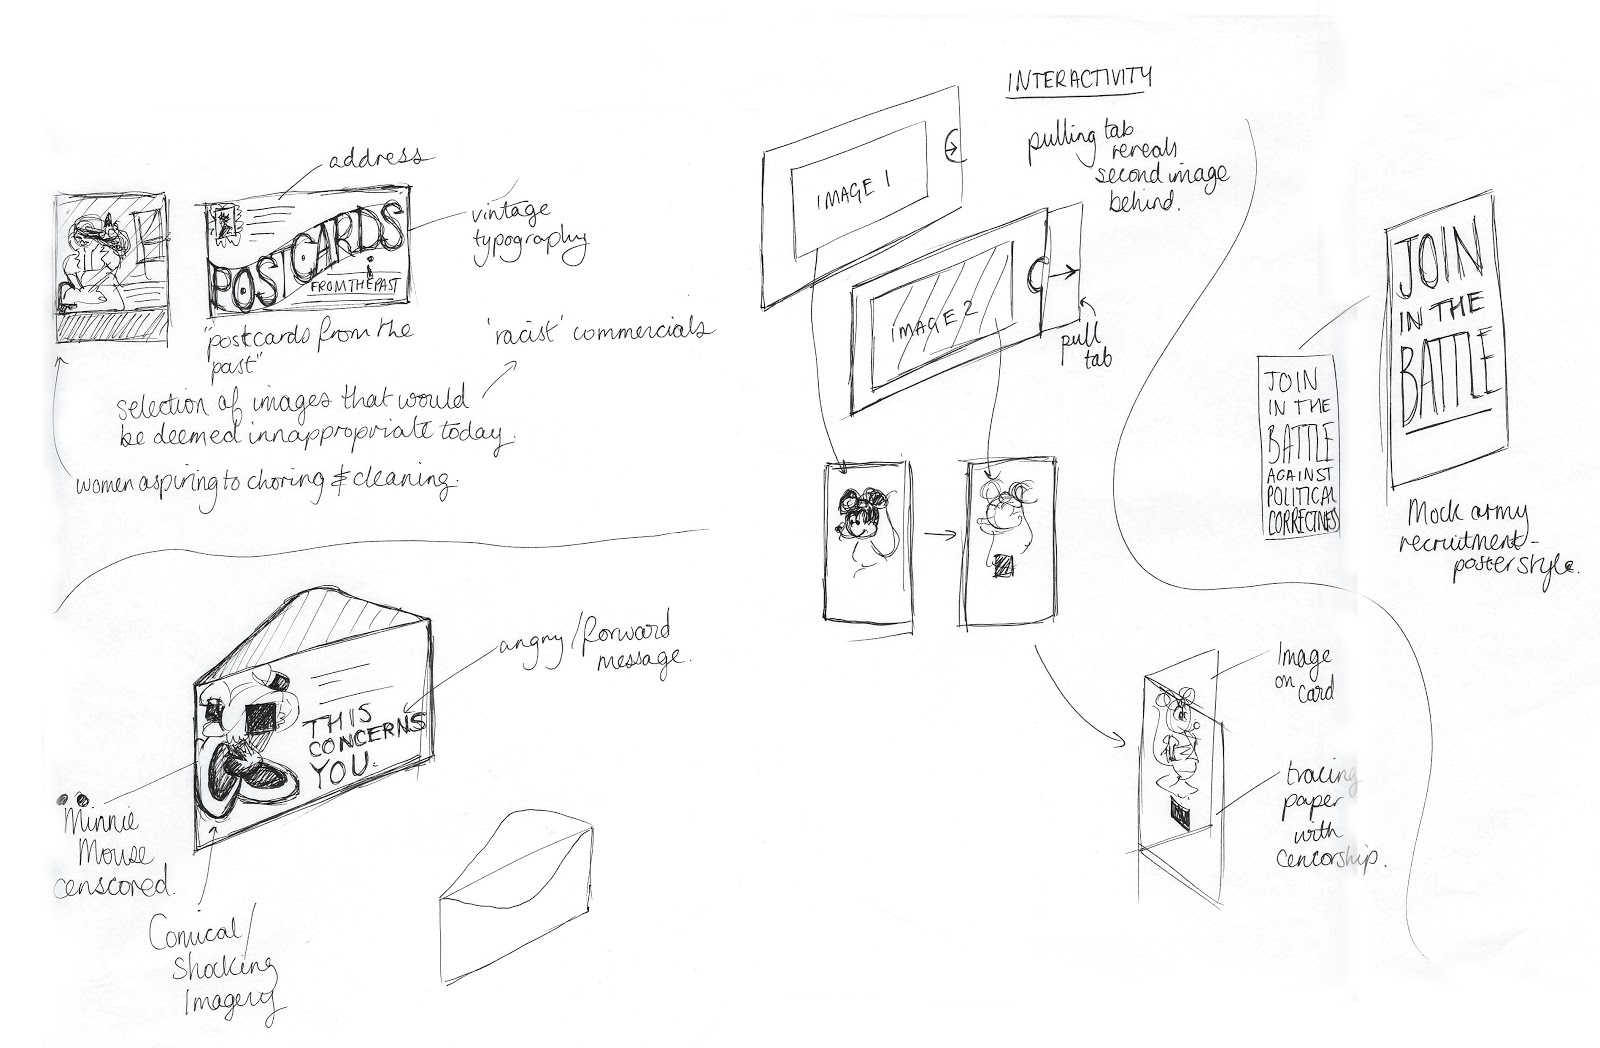 address
POSTCARDS
FROM THE PAST
vintage
typography
"postcards from the
past"
'racist' commercials
selection of images that would
be deemed innappropriate today.
women aspiring to choring & cleaning.
angry/forward
message.
THIS
CONCERNS
YOU.
Minnie
Mouse
censcored.
Comical/
Shocking
Imagery
INTERACTIVITY
pulling tab
reveals
second image
behind.
IMAGE 1
IMAGE 2
pull
tab
Image
on card
tracing
paper
with
cencorship.
JOIN
IN THE
BATTLE
AGAINST
POLITICAL
CORRECTNESS
JOIN
IN THE
BATTLE
Mock army
recruitment-
poster style.